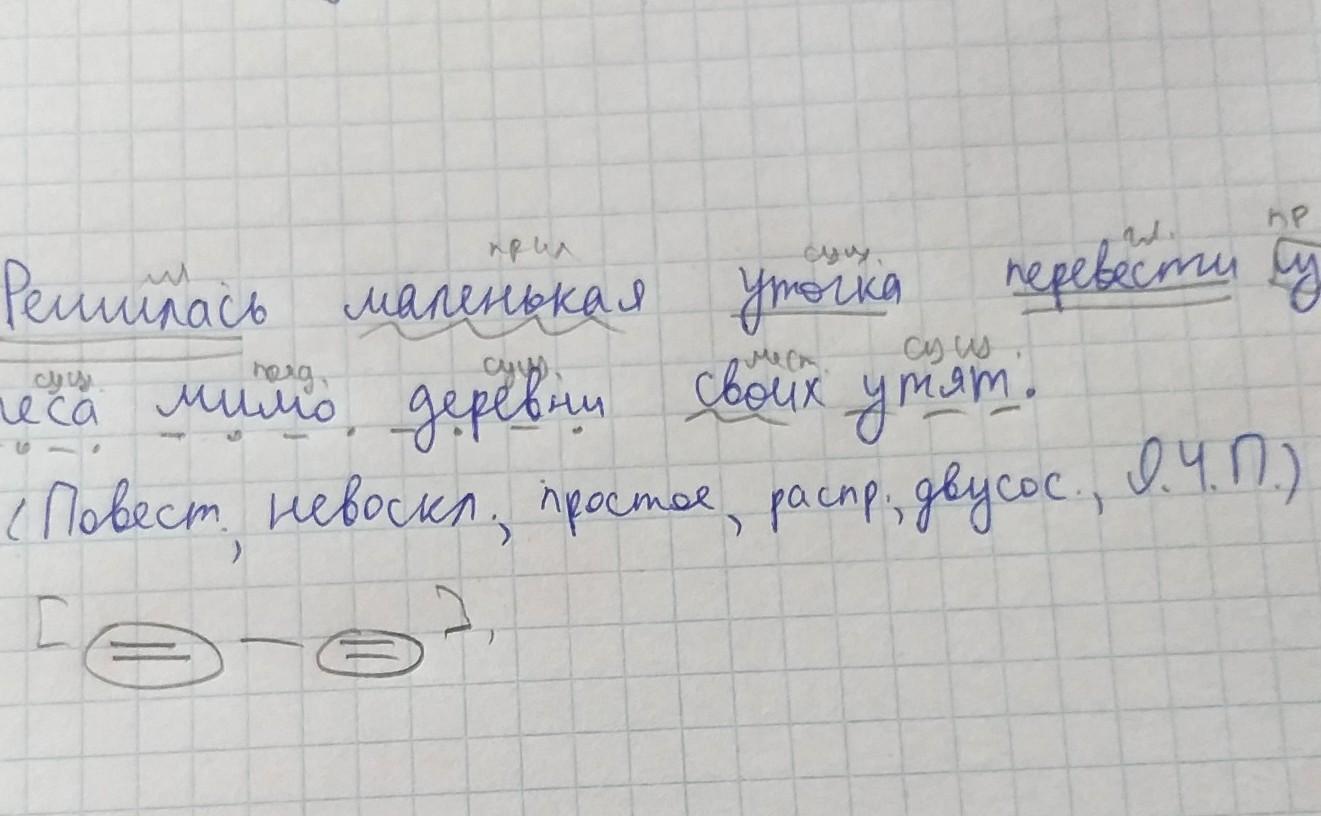 гл прил сущ. гл. пр
Решилась маленькая уточка перевести
сущ. сущ. мест. сущ.
леса мимо деревни своих утят.
(Повест., невоскл., простое, распр., двусос., О.Ч.П.)